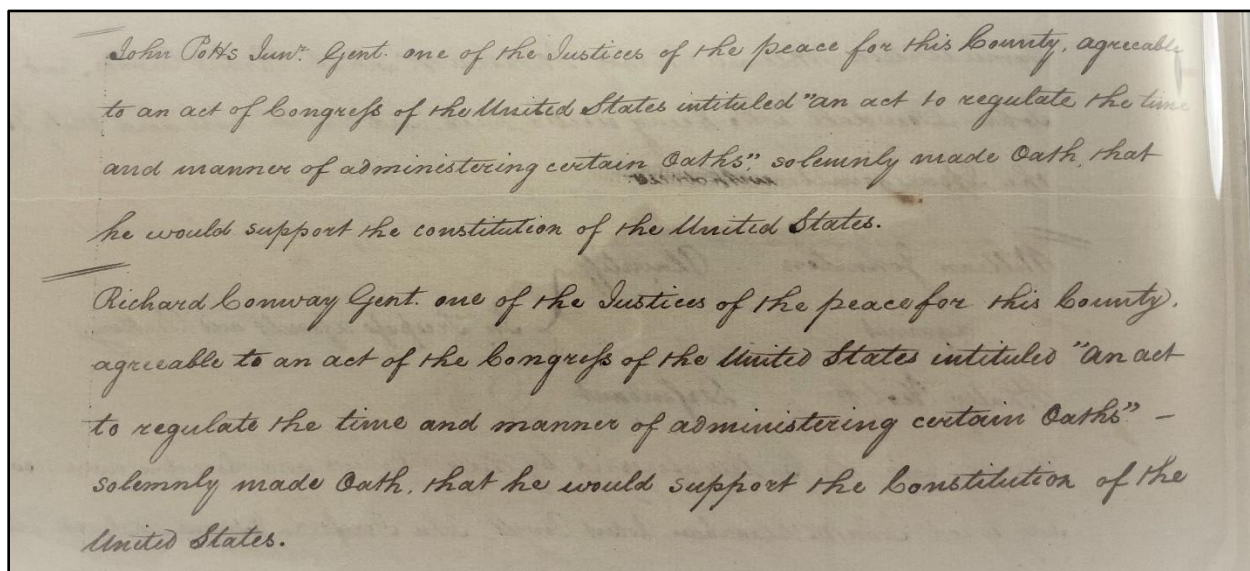 John Potts Junr. Gent. one of the Justices of the peace for this County, agreeably
to an act of Congress of the United States intituled "an act to regulate the time
and manner of administering certain Oaths", solemnly made Oath, that
he would support the constitution of the United States.
Richard Conway Gent. one of the Justices of the peace for this County,
agreeable to an act of the Congress of the United States intituled "an act
to regulate the time and manner of administering certain Oaths" –
solemnly made Oath, that he would support the Constitution of the
United States.